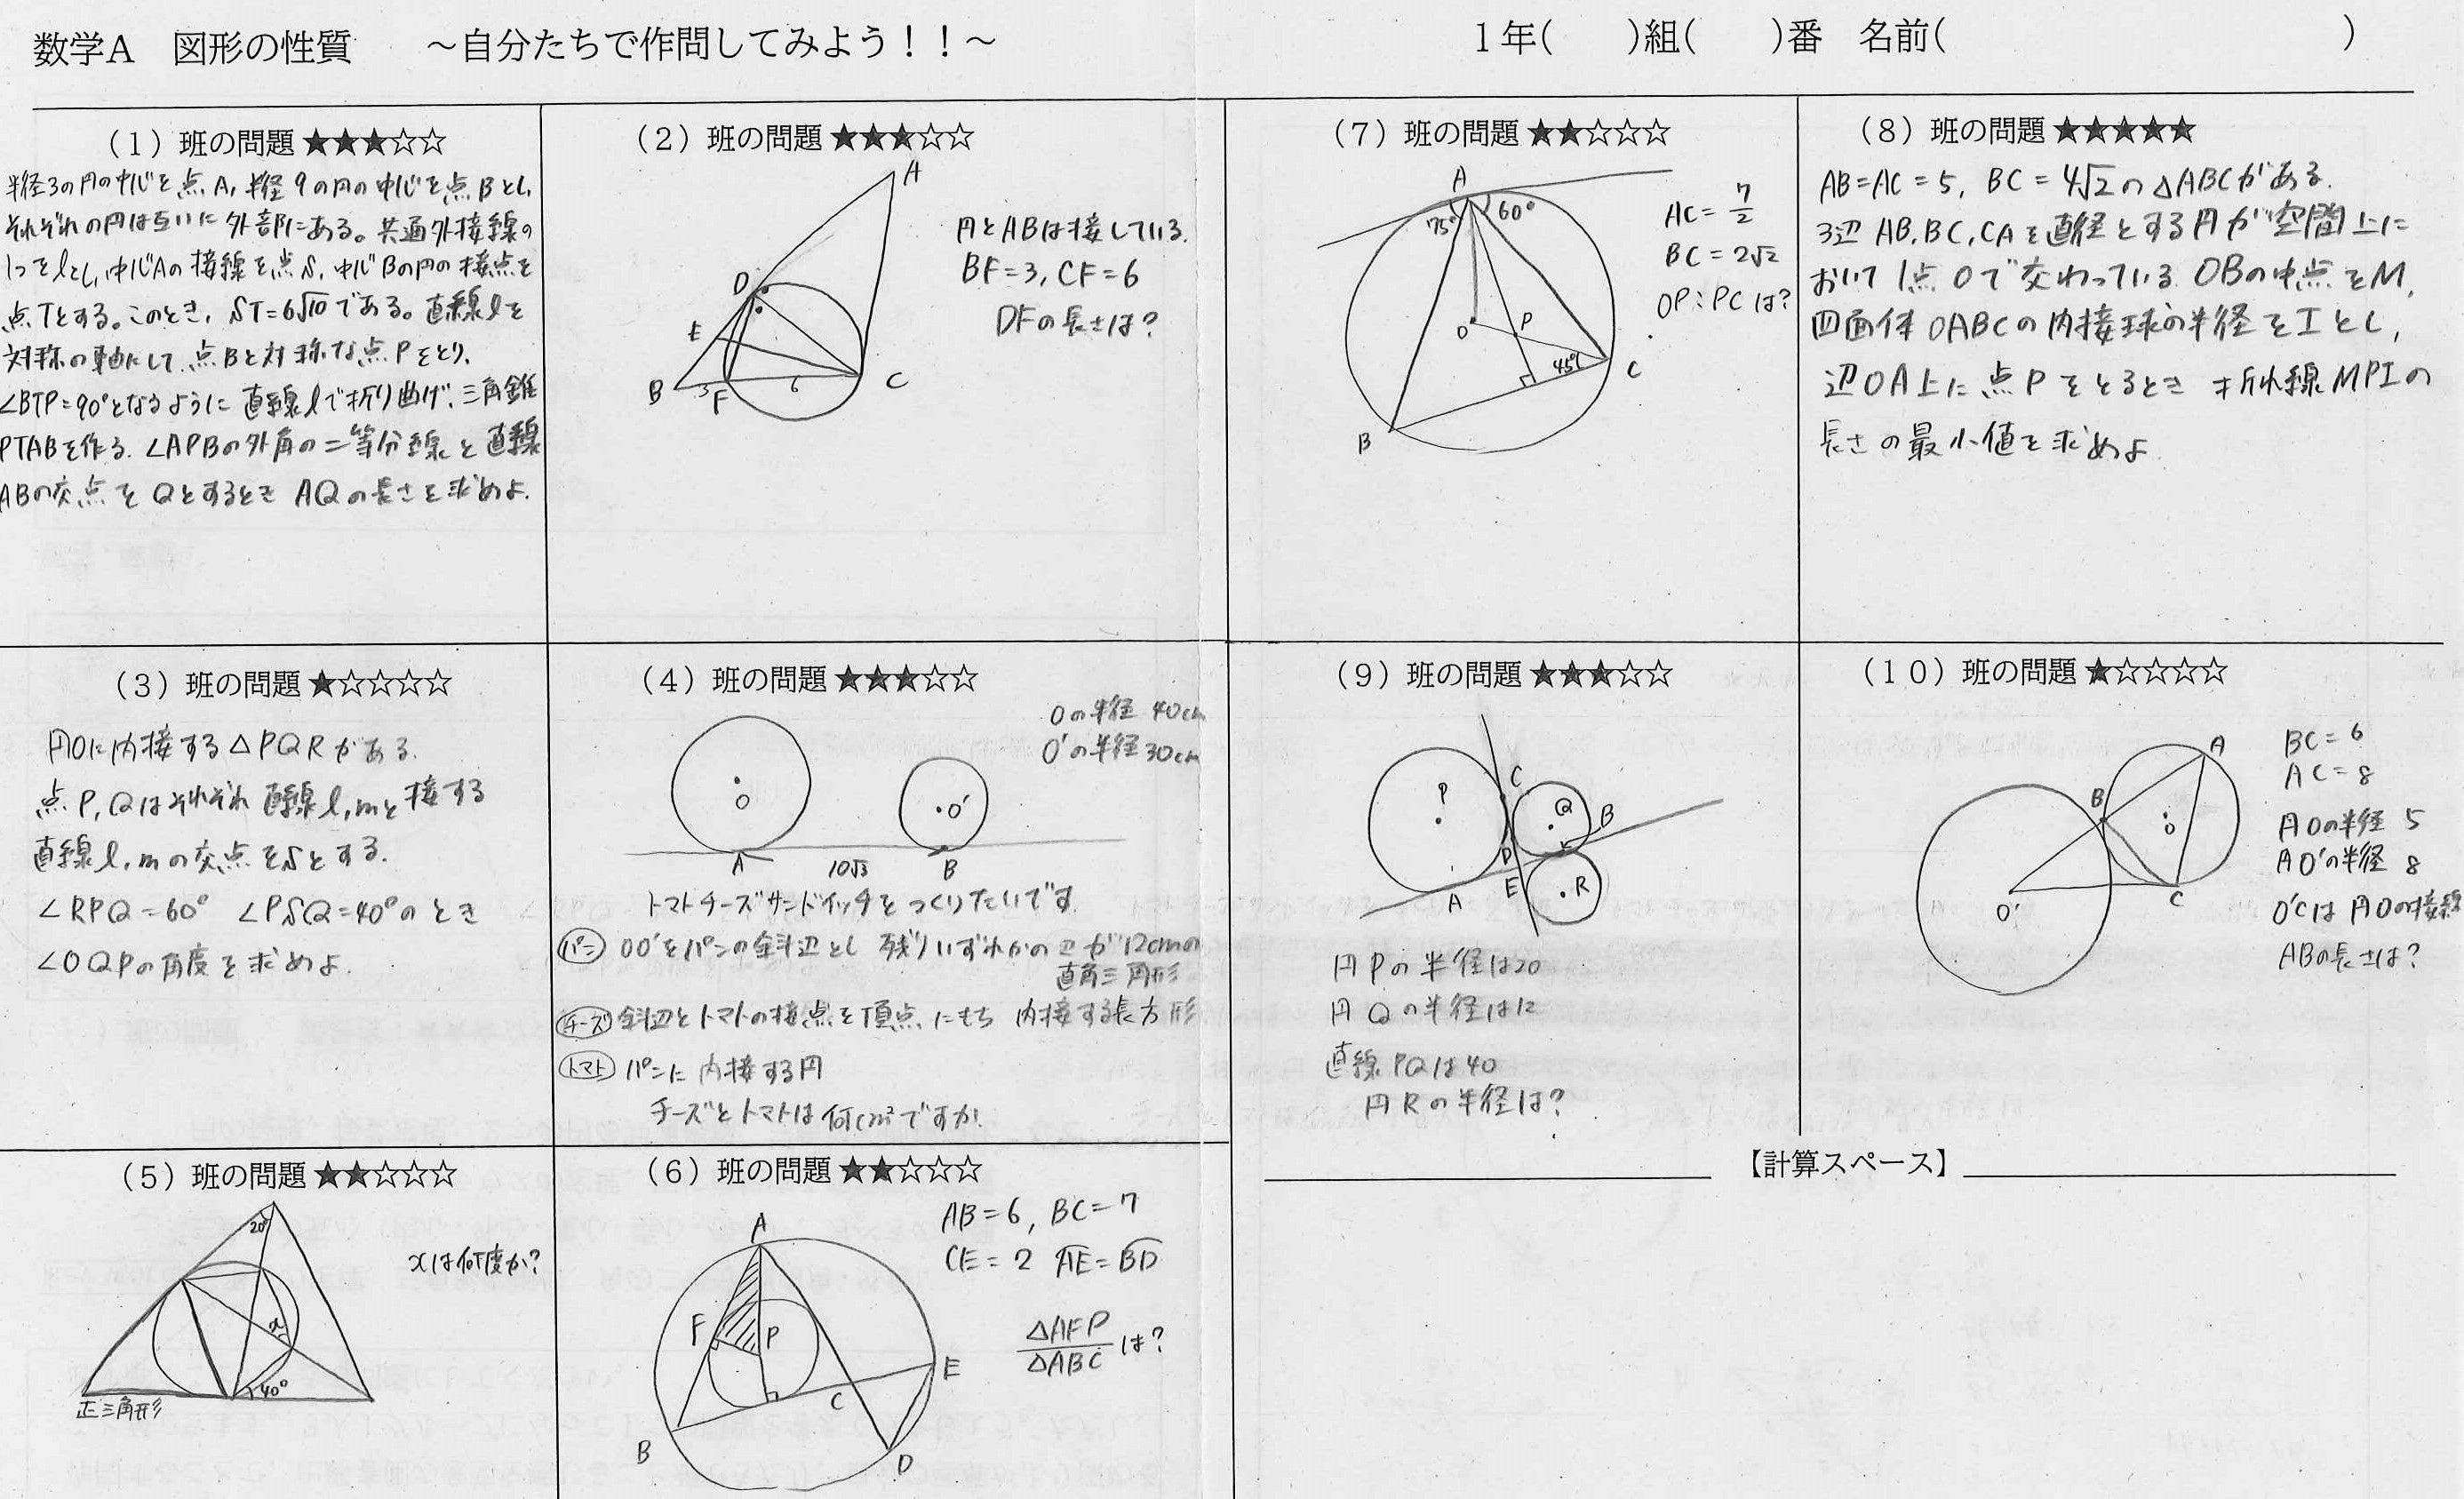 数学A 図形の性質 ～自分たちで作問してみよう！！～
1年( )組( )番 名前( )
(1) 班の問題 ★★★☆☆
半径3の円の中心を点A, 半径9の円の中心を点Bとし,
それぞれの円は互いに外部にある。共通外接線の
1つをlとし, 中心Aの接線を点S, 中心Bの円の接点を
点Tとする。このとき, ST=6√10である。直線lを
対称の軸にして、点Bと対称な点Pをとり,
∠BTP=90°となるように直線lで折り曲げ、三角錐
PTABを作る. ∠APBの外角の二等分線と直線
ABの交点をQとするとき AQの長さを求めよ.
(2) 班の問題 ★★★☆☆
A
D
E
B
3
F
6
C
円とABは接している.
BF=3, CF=6
DFの長さは?
(3) 班の問題 ★☆☆☆☆
円Oに内接する△PQRがある.
点P,Qはそれぞれ直線l,mと接する
直線l,mの交点をSとする.
∠RPQ=60° ∠PSQ=40°のとき
∠OQPの角度を求めよ.
(4) 班の問題 ★★★☆☆
Oの半径 40cm
O'の半径 30cm
O
O'
A
10√3
B
トマトチーズサンドイッチをつくりたいです.
パン OO'をパンの斜辺とし 残りいずれかの辺が12cmの
直角三角形
チーズ 斜辺とトマトの接点を頂点にもち 内接する長方形
トマト パンに内接する円
チーズとトマトは何cm²ですか.
(5) 班の問題 ★★☆☆☆
20°
x
40°
正三角形
xは何度か?
(6) 班の問題 ★★☆☆☆
A
F
P
E
C
B
D
AB=6, BC=7
CE=2 A͡E=B͡D
△AFP/△ABC は?
(7) 班の問題 ★★☆☆☆
A
75°
60°
O
P
45°
C
B
AC=7/2
BC=2√2
OP:PCは?
(8) 班の問題 ★★★★★
AB=AC=5, BC=4√2の△ABCがある.
3辺AB,BC,CAを直径とする円が空間上に
おいて1点Oで交わっている OBの中点をM,
四面体OABCの内接球の半径をIとし,
辺OA上に点Pをとるとき 折れ線MPIの
長さの最小値を求めよ.
(9) 班の問題 ★★★☆☆
P
C
Q
B
D
E
A
R
円Pの半径は20
円Qの半径は12
直線PQは40
円Rの半径は?
(10) 班の問題 ★☆☆☆☆
A
B
O
C
O'
BC=6
AC=8
円Oの半径 5
円O'の半径 8
O'Cは円Oの接線
ABの長さは?
【計算スペース】